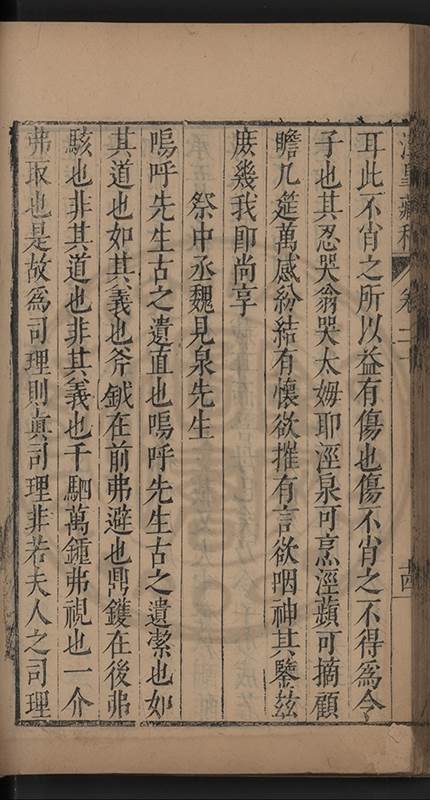 藏稿 卷二十 十四
耳此不肖之所以益有傷也傷不肖之不得爲今
子也其忍哭翁哭太姆耶涇泉可烹涇蘋可摘顧
瞻几筵萬感紛結有懷欲摧有言欲咽神其鑒茲
庶幾我卽尚享
祭中丞魏見泉先生
嗚呼先生古之遺直也嗚呼先生古之遺潔也如
其道也如其義也斧鉞在前弗避也鼎鑊在後弗
駭也非其道也非其義也千駟萬鍾弗視也一介
弗取也是故爲司理則眞司理非若夫人之司理